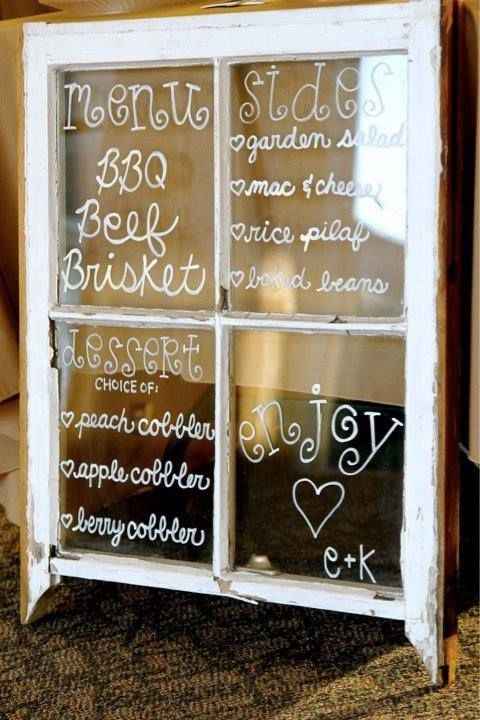 menu
BBQ
Beef
Brisket
sides
garden salad
mac & cheese
rice pilaf
baked beans
dessert
CHOICE OF:
peach cobbler
apple cobbler
berry cobbler
enjoy
e+K